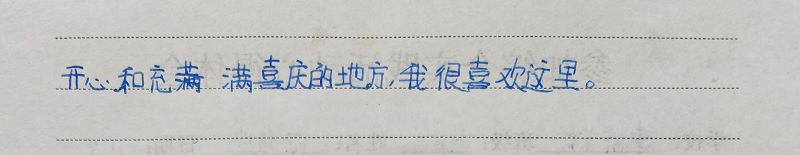 开心和充满 满喜庆的地方,我很喜欢这里。